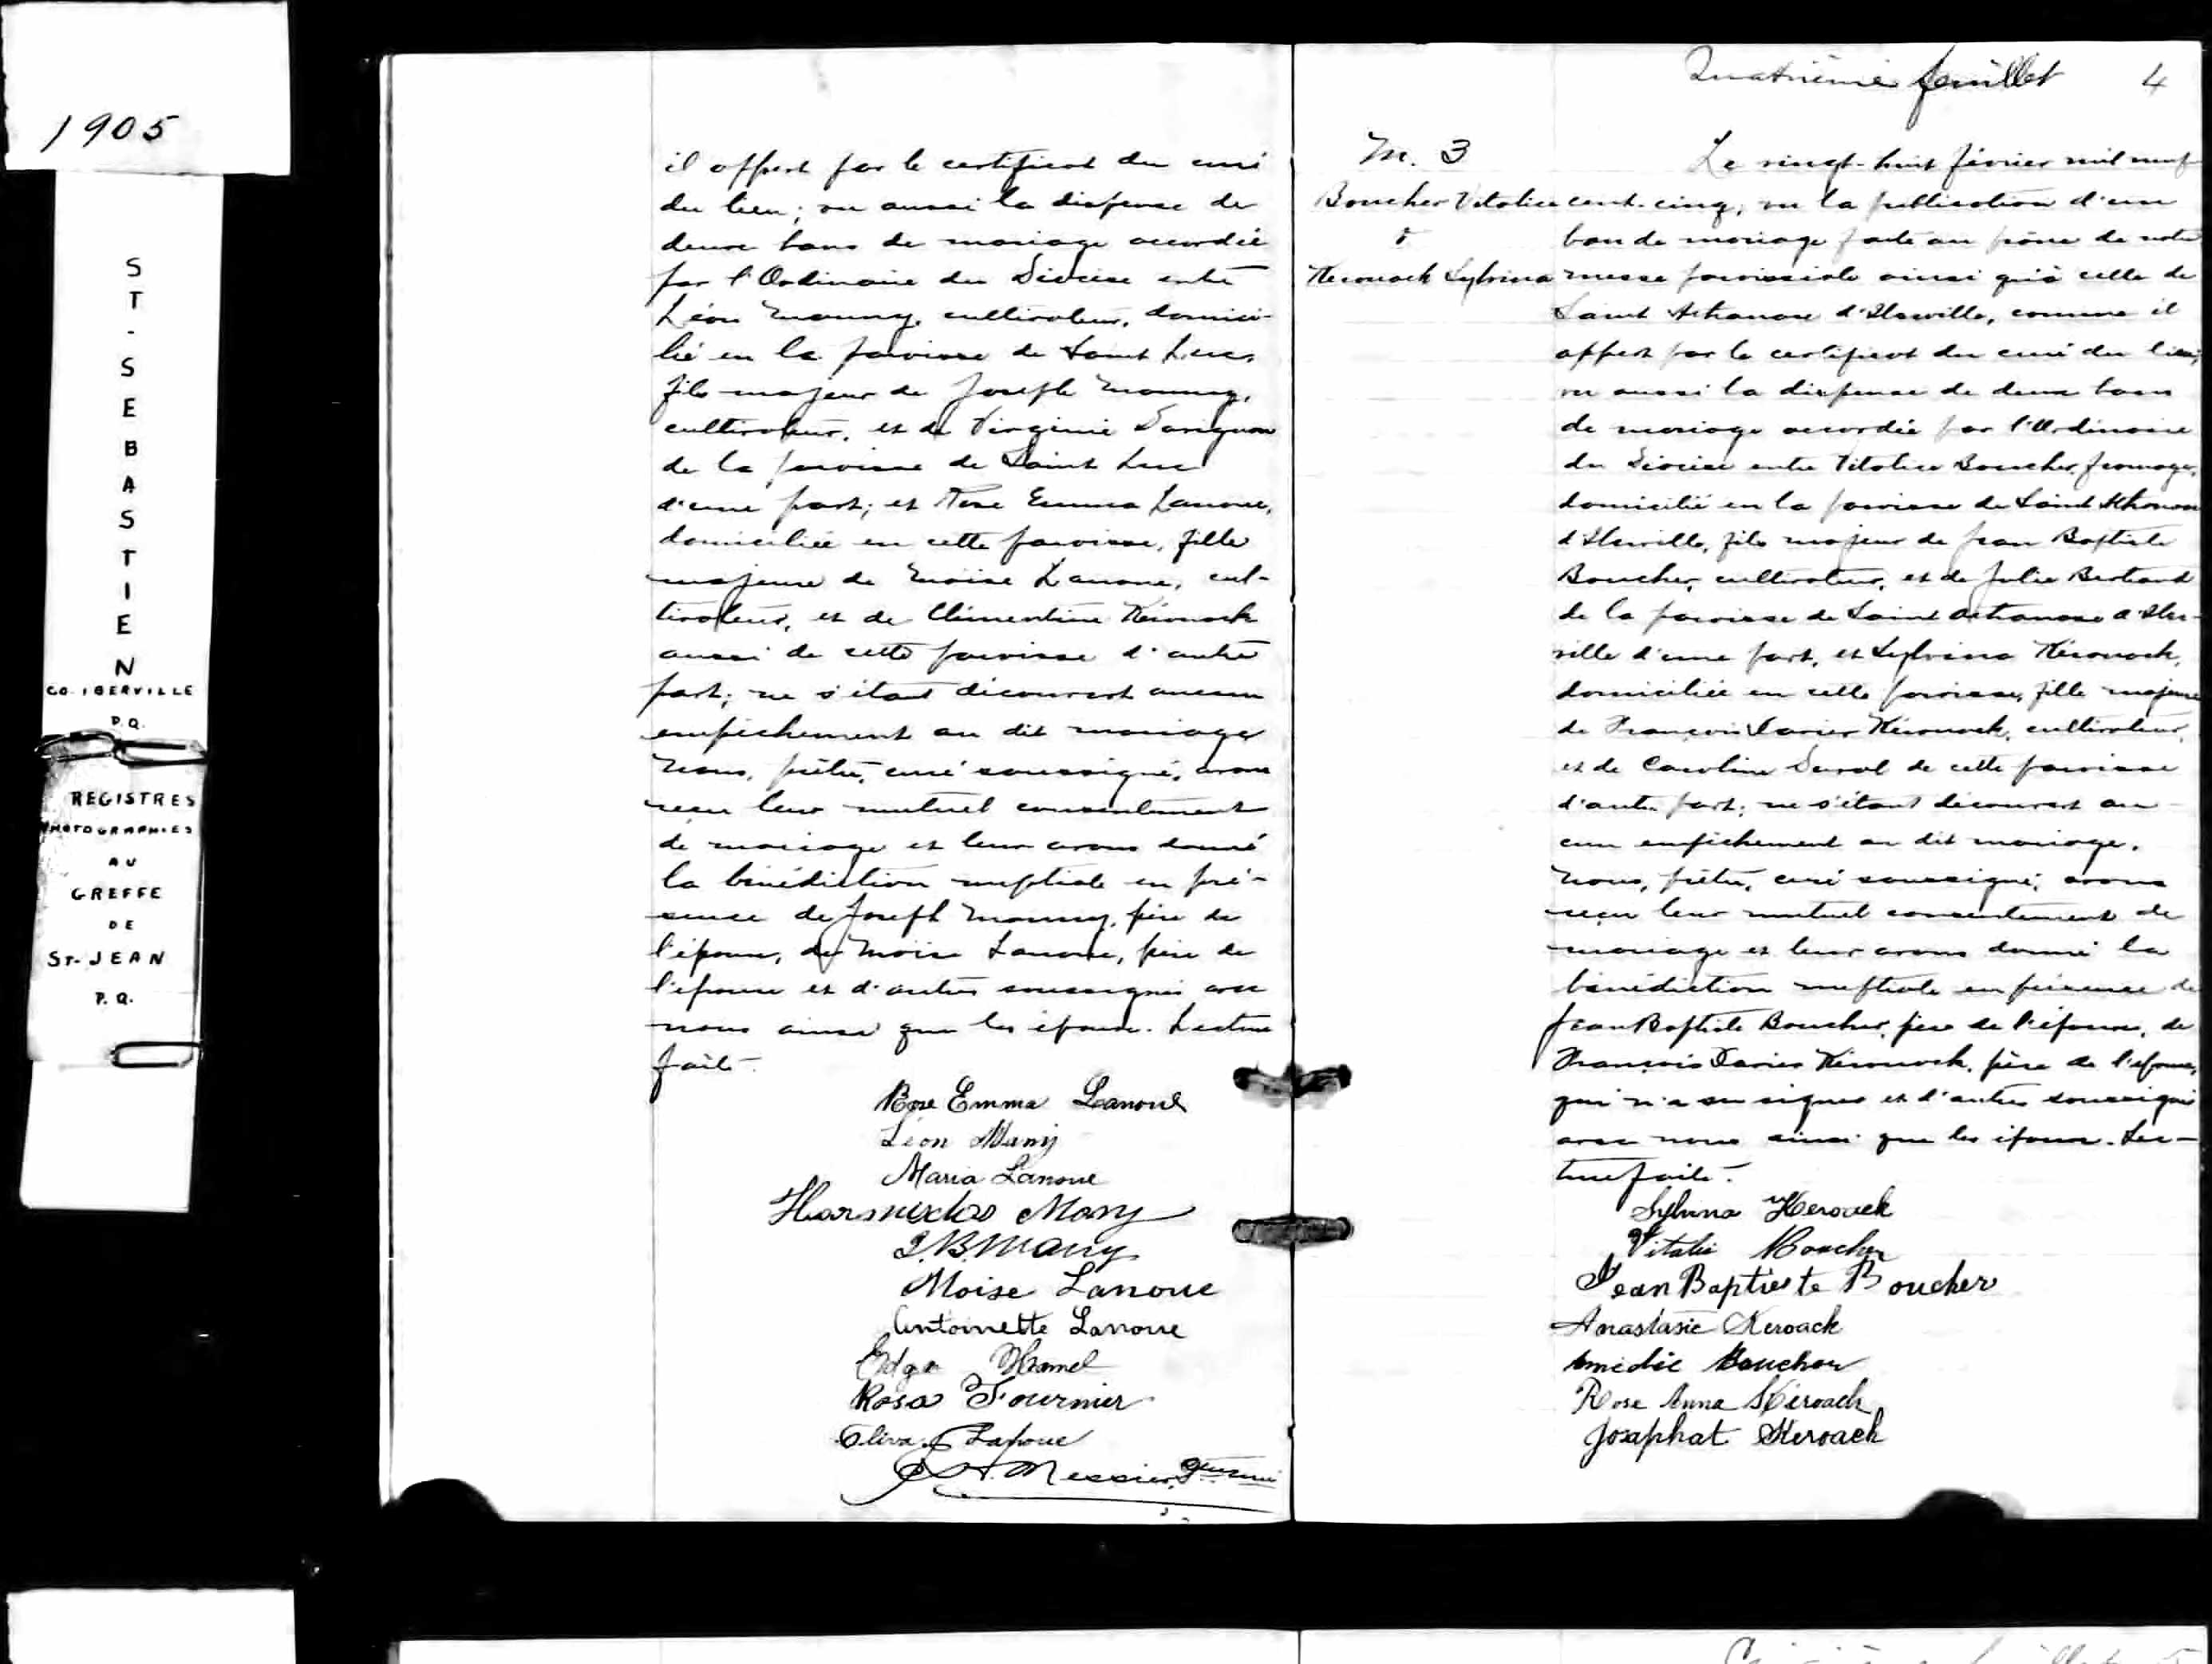 1905
ST-SEBASTIEN
CO. IBERVILLE
P.Q.
REGISTRES
PHOTOGRAPHIES
AU
GREFFE
DE
ST-JEAN
P.Q.
il appert par le certificat du curé
du lieu; vu aussi la dispense de
deux bans de mariage accordée
par l'Ordinaire du Diocèse entre
Léon Many, cultivateur, domici-
lié en la paroisse de Saint Luc,
fils majeur de Joseph Many,
cultivateur, et de Virginie
de la paroisse de Saint Luc
d'une part; et Rose Emma Lanoue,
domiciliée en cette paroisse, fille
majeure de Moïse Lanoue, cul-
tivateur, et de Clémentine Kérouack
aussi de cette paroisse d'autre
part; ne s'étant découvert aucun
empêchement au dit mariage
Nous, prêtre, curé soussigné, avons
reçu leur mutuel consentement
de mariage et leur avons donné
la bénédiction nuptiale en pré-
sence de Joseph Many, père de
l'époux, de Moïse Lanoue, père de
l'épouse et d'autres soussignés avec
nous ainsi que les époux. Lecture
faite.
Rose Emma Lanoue
Léon Many
Maria Lanoue
Hormisdas Many
J.B. Many
Moise Lanoue
Antoinette Lanoue
Hamel
Rosa Fournier
Oliva Lanoue
Messier, Ptre curé
Quatrième feuillet 4
M. 3
Boucher Vitalice
&
Kérouack Sylvina
Le vingt-huit février mil neuf
cent-cinq, vu la publication d'un
ban de mariage faite au prône de notre
messe paroissiale ainsi qu'à celle de
Saint Athanase d'Iberville, comme il
appert par le certificat du curé du lieu;
vu aussi la dispense de deux bans
de mariage accordée par l'Ordinaire
du Diocèse entre Vitalice Boucher, fromager,
domicilié en la paroisse de Saint Athanase
d'Iberville, fils majeur de Jean Baptiste
Boucher, cultivateur, et de Julie Bertrand
de la paroisse de Saint Athanase d'Iber-
ville d'une part, et Sylvina Kérouack,
domiciliée en cette paroisse, fille majeure
de François Xavier Kérouack, cultivateur,
et de Caroline Duval de cette paroisse
d'autre part; ne s'étant découvert au-
cun empêchement au dit mariage.
Nous, prêtre, curé soussigné, avons
reçu leur mutuel consentement de
mariage et leur avons donné la
bénédiction nuptiale en présence de
Jean Baptiste Boucher, père de l'époux, de
François Xavier Kérouack, père de l'épouse,
qui n'a su signer et d'autres soussignés
avec nous ainsi que les époux. Lec-
ture faite.
Sylvina Kerouack
Vitalis Boucher
Jean Baptiste Boucher
Anastasie Keroack
Amédée Boucher
Rose Anna Kéroack
Josaphat Keroack